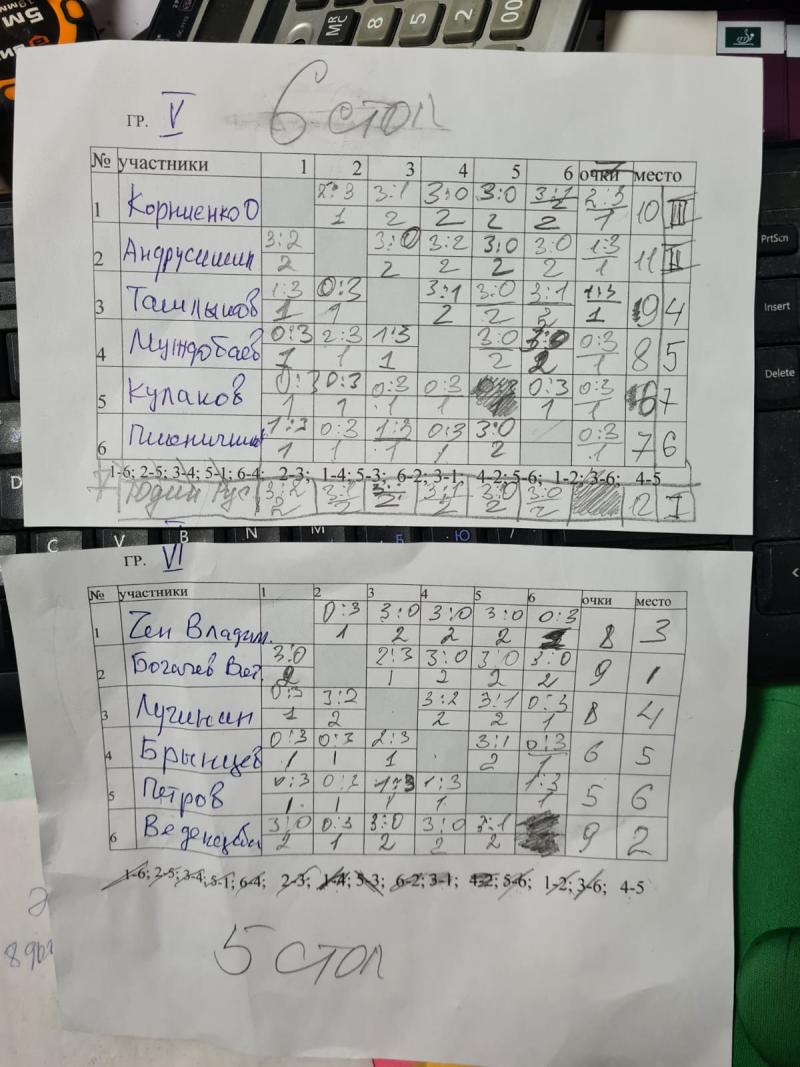 5M
19мм
MRC
8
5
2
00
ГР. V 6 стол
№ участники 1 2 3 4 5 6 очки место
1 Корниенко О 2:3 3:1 3:0 3:0 3:2 2:3
1 2 2 2 2 1 10 III
2 Андрусишин 3:2 3:0 3:2 3:0 3:0 1:3
2 2 2 2 2 1 11 II
3 Ташлыков 1:3 0:3 3:1 3:0 3:1 1:3
1 1 2 2 2 1 9 4
4 0:3 2:3 1:3 3:0 3:0 0:3
1 1 1 2 2 1 8 5
5 Кулаков 0:3 0:3 0:3 0:3 0:3 0:3
1 1 1 1 1 1 7
6 1:3 0:3 1:3 0:3 3:0 0:3
1 1 1 1 2 1 7 6
1-6; 2-5; 3-4; 5-1; 6-4; 2-3; 1-4; 5-3; 6-2; 3-1; 4-2; 5-6; 1-2; 3-6; 4-5
Рус 3:2 3:1 3:1 3:0 3:0
2 2 2 2 2 2 12 I
PrtScn
Insert
Delete
D
C V B N M
Б Ю
ГР. VI
№ участники 1 2 3 4 5 6 очки место
1 Чен Владим. 0:3 3:0 3:0 3:0 0:3
1 2 2 2 1 8 3
2 Богачев Вит. 3:0 2:3 3:0 3:0 3:0
2 1 2 2 2 9 1
3 Лучинин 0:3 3:2 3:2 3:1 0:3
1 2 2 2 1 8 4
4 Брынцев 0:3 0:3 2:3 3:1 0:3
1 1 1 2 1 6 5
5 Петров 0:3 0:3 1:3 1:3 1:3
1 1 1 1 1 5 6
6 3:0 0:3 3:0 3:0 3:1
2 1 2 2 2 9 2
1-6; 2-5; 3-4; 5-1; 6-4; 2-3; 1-4; 5-3; 6-2; 3-1; 4-2; 5-6; 1-2; 3-6; 4-5
5 стол